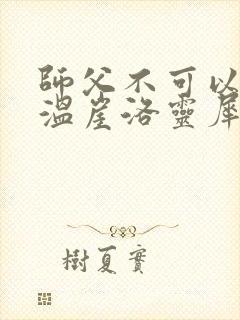 師父不可以
溫崖洛靈犀
樹夏實